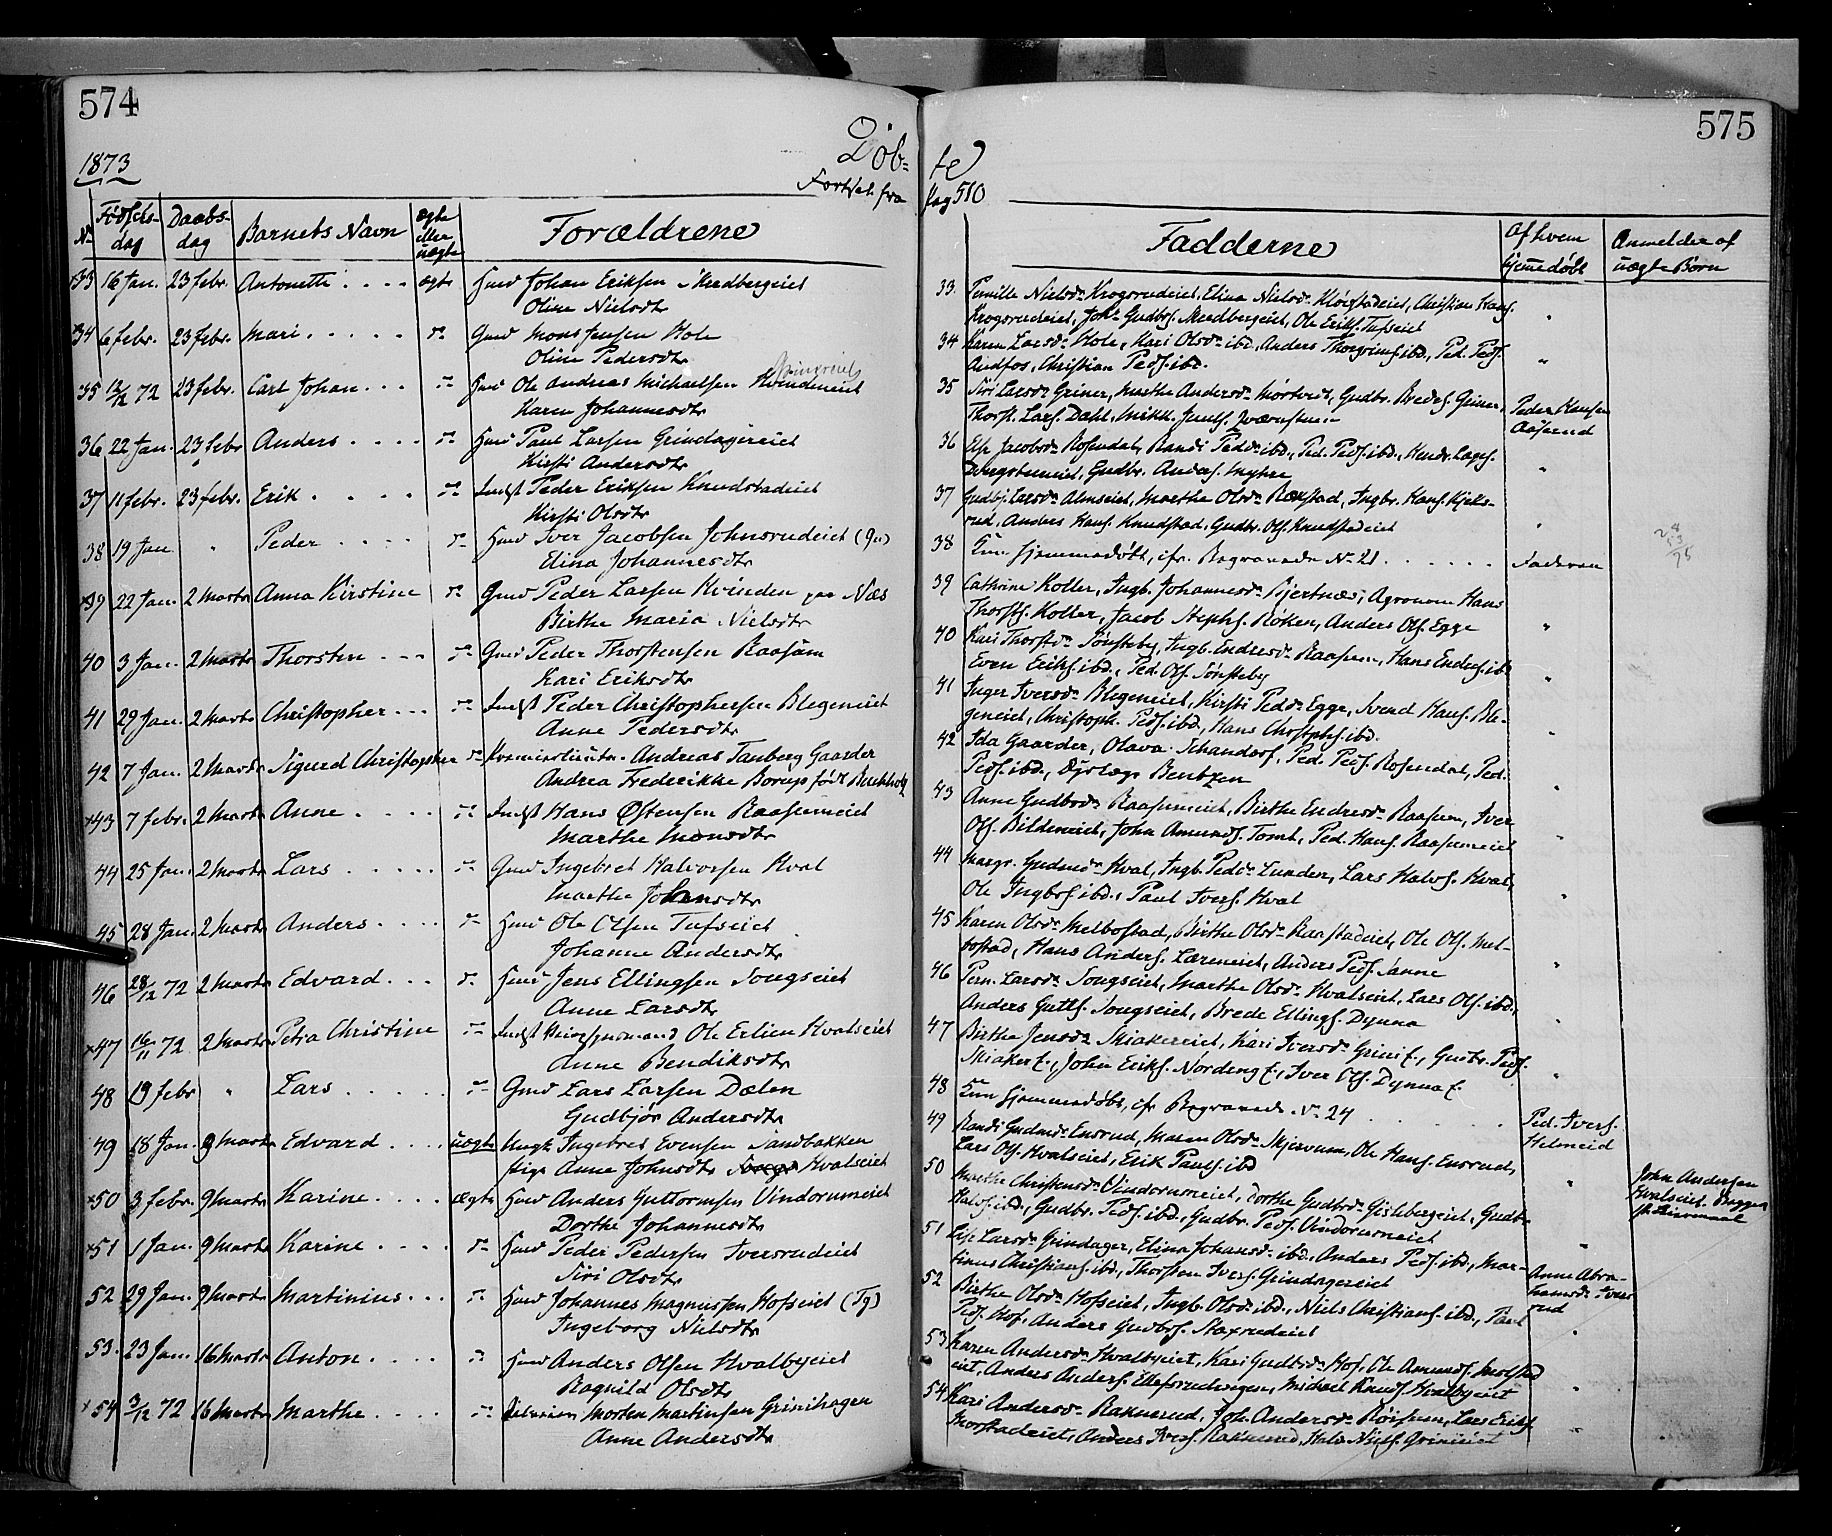 574
1873
Døb-
Fortsat fra
No Fødsels-dag Daabs-dag Barnets Navn ægte eller uægte Forældrene
33 16 Jan. 23 febr. Antonette .... ægte Huusmd Johan Eriksen
Oline Nielsdtr
34 6 febr. 23 febr. Mari ..... do Gmd Mons Jensen Hole
Oline Pedersdtr
35 12/12 72 23 febr. Carl Johan ... do Hmd Ole Andreas Michaelsen
Karen Johannesdtr
36 22 Jan. 23 febr Anders .... do Hmd Paul Larsen Grindagereiet
Kirsti Andersdtr
37 11 febr. 23 febr. Erik .... do Indst Peder Eriksen Knudstadeiet
Kirsti Olsdtr
38 19 Jan " Peder .... do Hmd Iver Jacobsen Johnsrudeiet (Gr)
Elina Johannesdtr
x39 22 Jan. 2 Marts Anna Kirstine do Gmd Peder Larsen Hvinden paa Næs
Birthe Maria Nielsdtr
40 3 Jan. 2 Marts Thorsten --- do Gmd Peder Thorstensen Raasum
Kari Eriksdtr
41 29 Jan. 2 Marts Christopher --- do Indst Peder Christophersen Blegeneiet
Anne Pedersdtr
42 7 Jan. 2 Marts Sigurd Christopher do Premierlieutn. Andreas Tanberg Gaarder
Andrea Frederikke Borup født Buchholz
x43 7 febr. 2 Marts Anne .... do Indst Hans Østensen Raasumeiet
Marthe Monsdtr
44 25 Jan. 2 Marts Lars ..... do Gmd Ingebret Halvorsen Hval
Marthe Johnsdtr
45 28 Jan. 2 Marts Anders .... do Hmd Ole Olsen Tufseiet
Johanne Andersdtr
46 28/12 72 2 Marts Edvard ... do Hmd Jens Ellingsen Songseiet
Anne Larsdtr
x47 16/11 72 2 Marts Petra Christine do Indst Ole Erlien Hvalseiet
Anne Bendiksdtr
48 19 febr " Lars ..... do Gmd Lars Larsen Dælen
Gudbjør Andersdtr
49 18 Jan. 9 Marts Edvard .... uægte Ungk Ingebret Evensen Sandbakken
Pige Anne Johnsdtr Hvalseiet
x50 3 febr. 9 Marts Karine .... ægte Hmd Anders Guttormsen Vindorumeiet
Dorthe Johannesdtr
x51 1 Jan. 9 Marts Karine .... do Hmd Peder Pedersen Iversrudeiet
Siri Olsdtr
52 29 Jan. 9 Marts Martinius ... do Hmd Johannes Magnussen Hofseiet (Tg)
Ingeborg Nielsdtr
53. 23 Jan. 16 Marts Anton .... do Hmd Anders Olsen Hvalbyeiet
Ragnild Olsdtr
x54 3/12 72 16 Marts Marthe .... do Morten Martinsen Grinihagen
Anne Andersdtr
575
te
Pag 510
Fadderne Af hvem hjemmedøbt Anmelder af uægte Børn
33. Pernille Nielsdr Krogsrudeiet, Elina Nielsdr Christian Hans.
Krogsrudeiet, Joh. Gudbrs. Ole Eriks. Tufseiet "
34 Karen Larsdr Hole, Kari Olsdr ibd, Anders Thorgrims. ibd., Ped. Peds.
Christian Peds. ibd. "
35 Siri Larsdr Griner, Marthe Andersdr Gudbr. Bredes. Griner,
Thorst. Lars. Dahl, Mikk. Peder Hansen
Aaserud
36 Else Jacobsdr Rosendal, Randi Pedsdr ibd., Ped. Peds. ibd.,
Gudbr. Anders. "
37 Gudbj. Larsdr Almseiet, Marthe Olsdr Ingbr. Hans. Kjels-
rud, Anders Hans. Knudstad, Gudbr. Ols. Knudstadeiet "
38 Kun hjemmedøbt, cfr. Begravede No 21 ...... Faderen
39 Cathrine Koller, Ingb. Johannesdr Bjertnæs, Agronom Hans
Thorsts. Koller, Jacob Røken, Anders Ols. Egge "
40 Kari Thorstdr Sønsteby, Ingb. Endresdr Raasum, Hans Endres. ibd
Even Eriks. ibd., Ped. Ols. Sønsteby "
41 Inger Iversdr Blegeneiet, Kirsti Pedsdr Egge, Svend Hans. Ble-
geneiet, Christoph. Peds. ibd., Hans Chrstphs. ibd. "
42 Ida Gaarder, Olava Schandorf, Ped. Peds. Rosendal, Ped.
Peds. ibd., Dyrlæge Bentzen "
43 Anne Gudbrdr Raasumeiet, Birthe Endresdr Raasum, Iver
Ols. Bildeneiet, John Amunds. Tomt, Ped. Hans. Raasumeiet "
44 Margr. Gudmdr Hval, Ingb. Pedsdr Lunder, Lars Halvs. Hval,
Ole Ingbrs. ibd., Paul Ivers. Hval "
45 Karen Olsdr Melbostad, Birthe Olsdr Ole Ols. Mel-
bostad, Hans Anders. Anders Peds. Sanne "
46 Pern. Larsdr Songseiet, Marthe Olsdr Hvalseiet, Lars Ols. ibd.,
Anders Gutts. Songseiet, Brede Ellings. Dynna "
47 Birthe Jensdr Skiakereiet, Kari Iversdr Gudbr. Peds.
John Eriks. Iver Ols. "
48 Kun hjemmedøbt, cfr Begravede No 24 . . Ped. Ivers.
49 Randi Gudmdr Ensrud, Maren Olsdr Skjervum, Ole Hans. Ensrud,
Lars Ols. Hvalseiet, Erik Pauls. ibd " John Andersen
Hvalseiet
50 Marthe Christensdr Vindorumeiet, Dorthe Gudbrdr Gislebergeiet, Gudbr.
Halvs. ibd., Gudbr. Peds. ibd., Gudbr. Peds. Vindorumeiet "
51 Else Larsdr Grindager, Elina Johansdr ibd., Anders Peds. ibd., Mar-
tinus Christians. ibd., Thorsten Ivers. Grindagereiet Anne Abra-
hamsdr Ivers-
rud
52 Birthe Olsdr Hofseiet, Ingb. Olsdr ibd., Niels Christians. ibd., Paul
Peds. Hof, Anders Gudbrs. "
53 Karen Andersdr Hvalbyeiet, Kari Gudbrdr Hof, Ole Amunds.
Anders Anders. Michael Knuds. Hvalbyeiet "
54 Kari Andersdr Raknerud, Joh. Andersdr Lars Eriks.
Anders Ivers. Raknerud, Halv. Niels. Grinieiet "